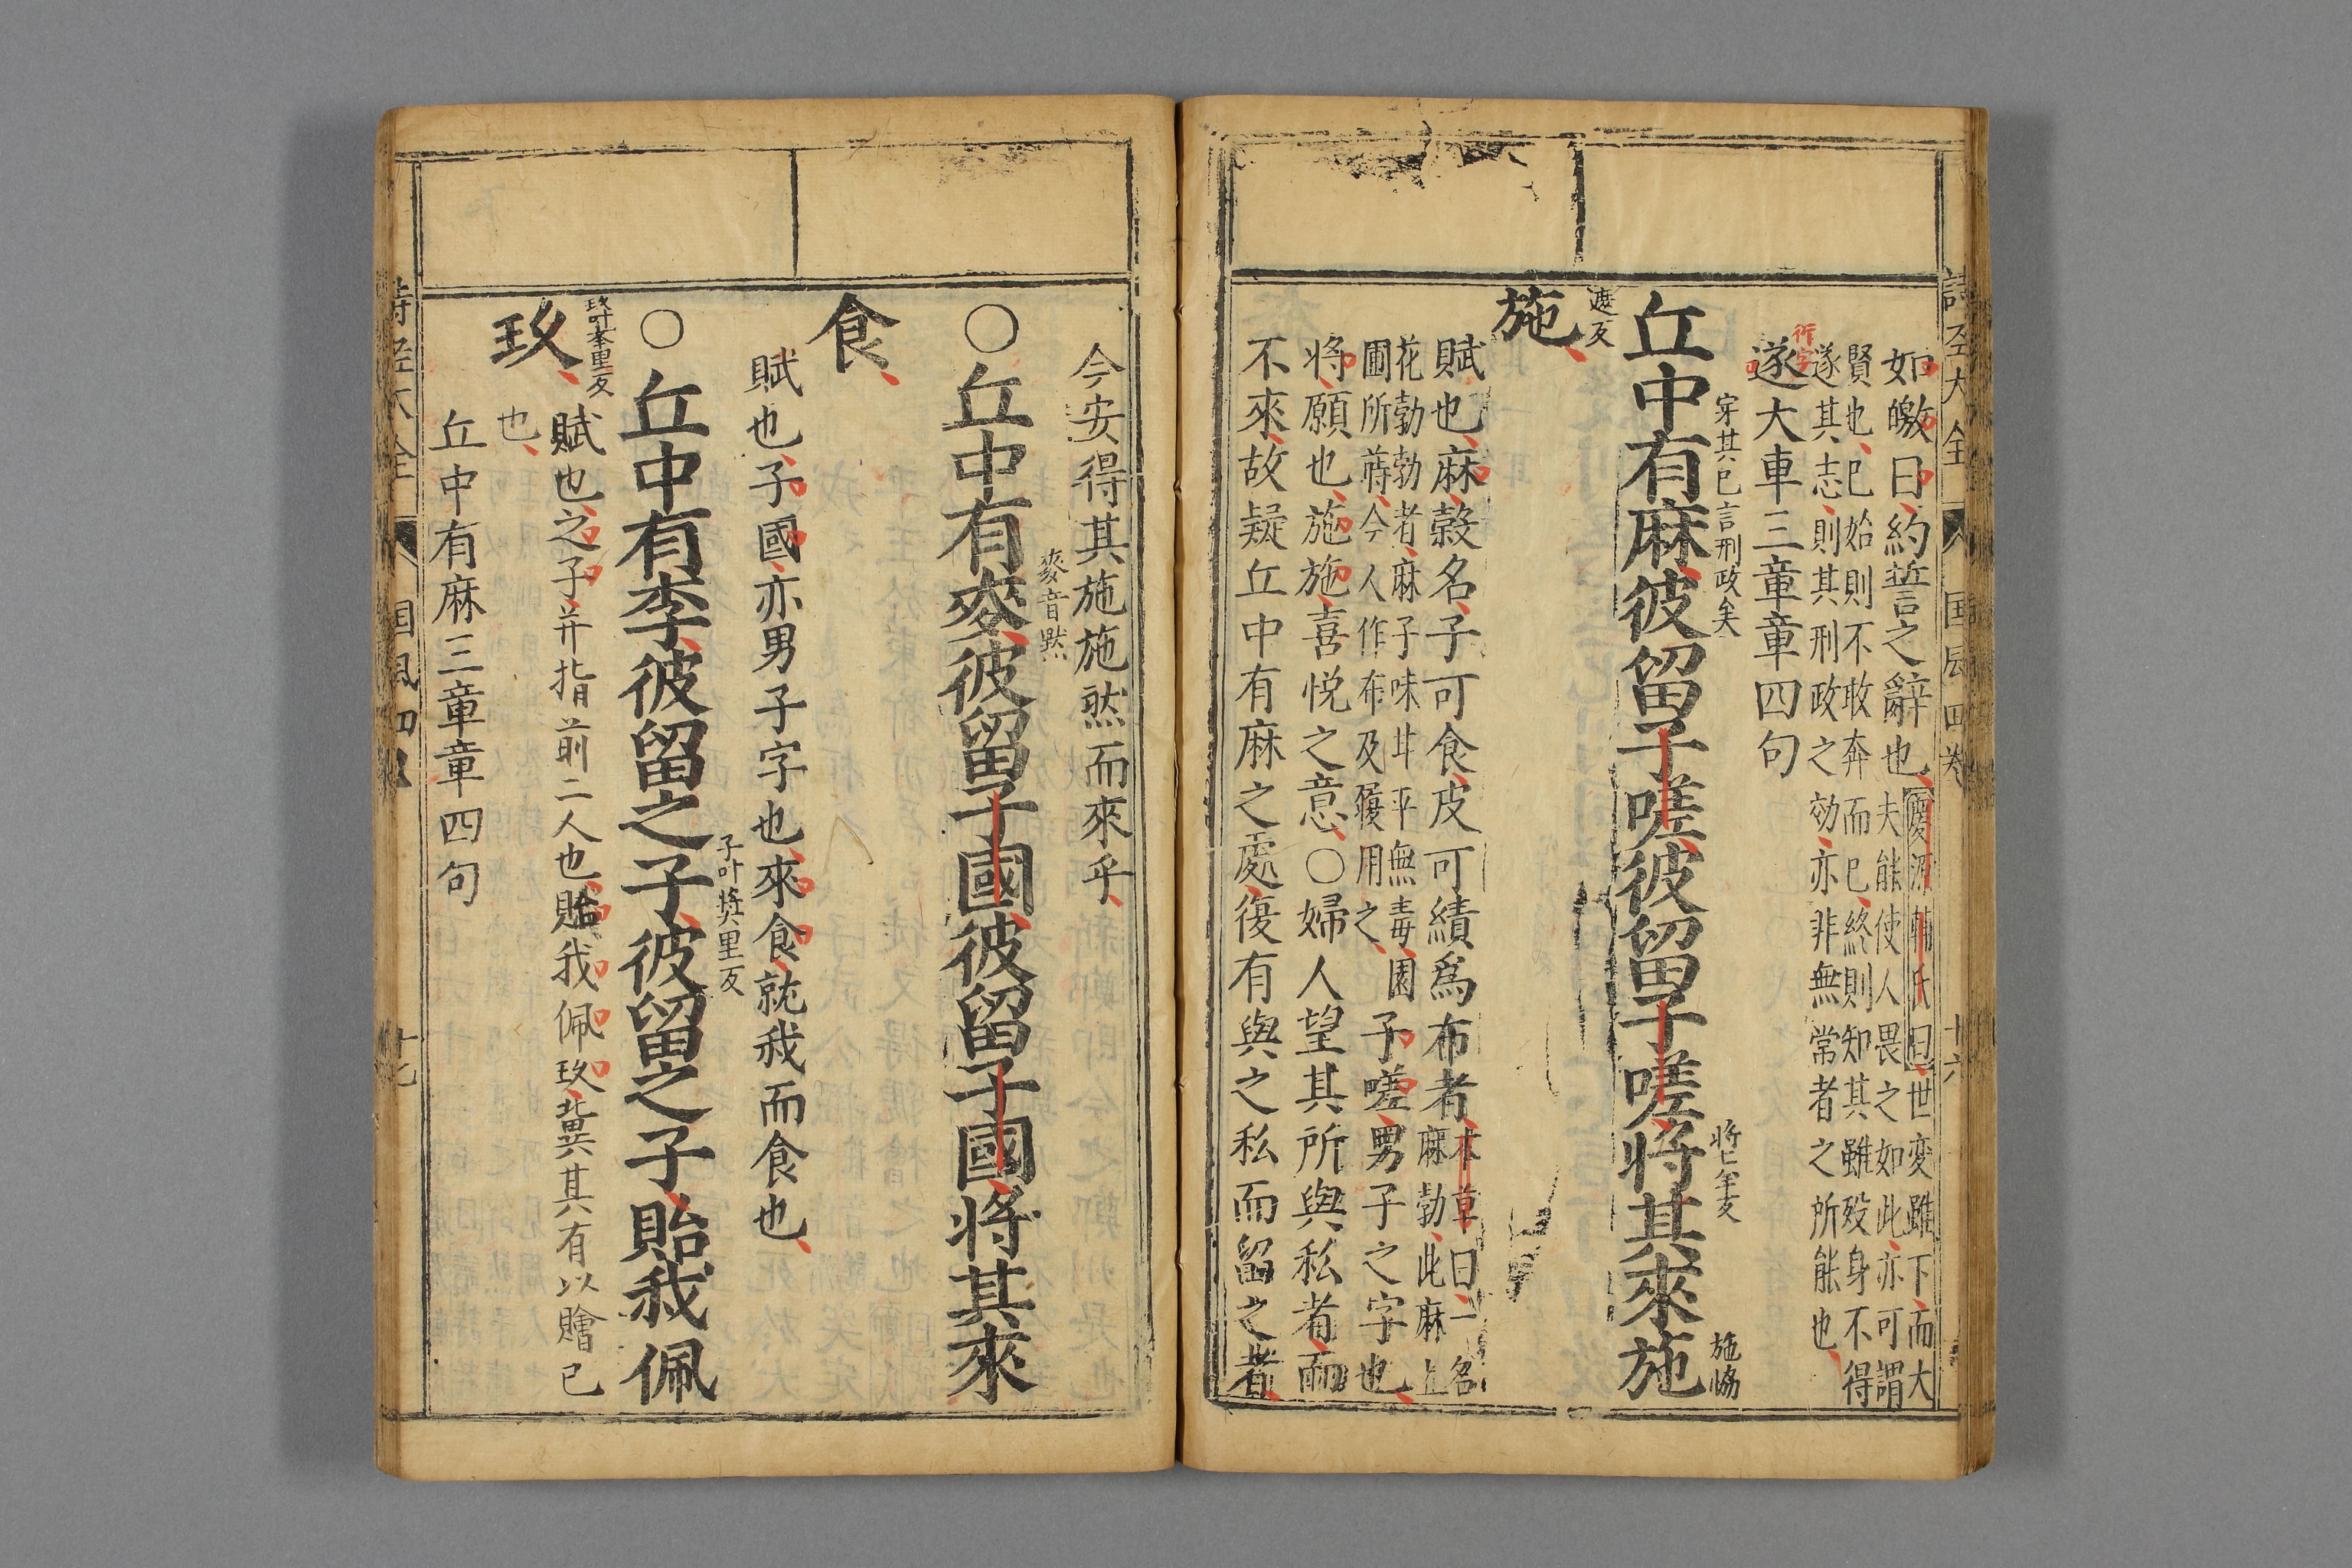 詩経大全 国風四巻 十六
如皦日約誓之辭也慶源輔氏曰世変雖下而大
夫能使人畏之如此亦可謂
賢也已始則不敢奔而已終則知其雖殁身不得
遂其志則其刑政之効亦非無常者之所能也
衍字
遂大車三章章四句
穿其已言刑政矣
丘中有麻彼留子嗟彼留子嗟將其來施
將七羊反
施協
遮反
施
賦也麻穀名子可食皮可績爲布者本草曰一名
麻勃此麻上
花勃勃者麻子味甘平無毒園
圃所蒔今人作布及履用之
子嗟男子之字也
將願也施施喜悦之意○婦人望其所與私者而
不來故疑丘中有麻之處復有與之私而留之者
今安得其施施然而來乎
麥音默
○丘中有麥彼留子國彼留子國將其來
食
賦也子國亦男子字也來食就我而食也
子叶奨里反
○丘中有李彼留之子彼留之子貽我佩
玖叶奉里反
玖
賦也之子并指前二人也貽我佩玖冀其有以贈己
也
丘中有麻三章章四句
詩経大全 国風四巻 十七